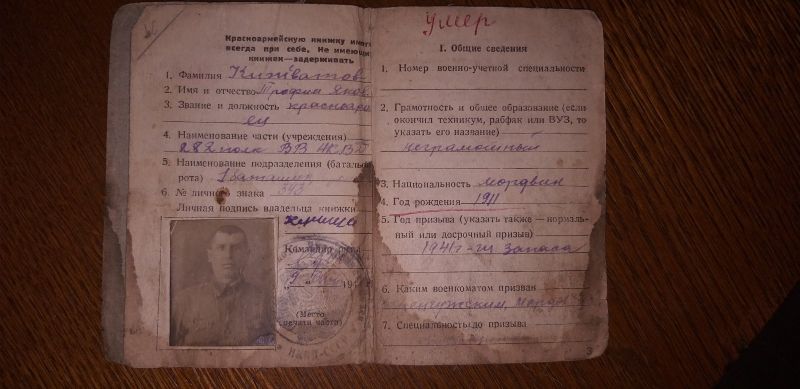 Красноармейскую книжку иметь
всегда при себе. Не имеющих
книжек—задерживать
1. Фамилия Киржватов
2. Имя и отчество Трофим Яков
3. Звание и должность красноарм
ец
4. Наименование части (учреждения)
282 полк ВВ НКВД
5. Наименование подразделения (батальо
рота) 1 батальон
6. № личного знака
Личная подпись владельца книжки
Командир
9
(Место
печати части)
умер
I. Общие сведения
1. Номер военно-учетной специальности
2. Грамотность и общее образование (если
окончил техникум, рабфак или ВУЗ, то
указать его название)
неграмотный
3. Национальность мордвин
4. Год рождения 1911
5. Год призыва (указать также — нормаль-
ный или досрочный призыв)
1941 г. из запаса
6. Каким военкоматом призван
7. Специальность до призыва
3